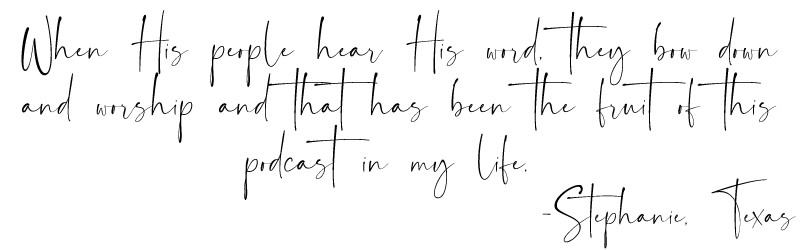 When His people hear His word, they bow down
and worship and that has been the fruit of this
podcast in my life.
-Stephanie, Texas